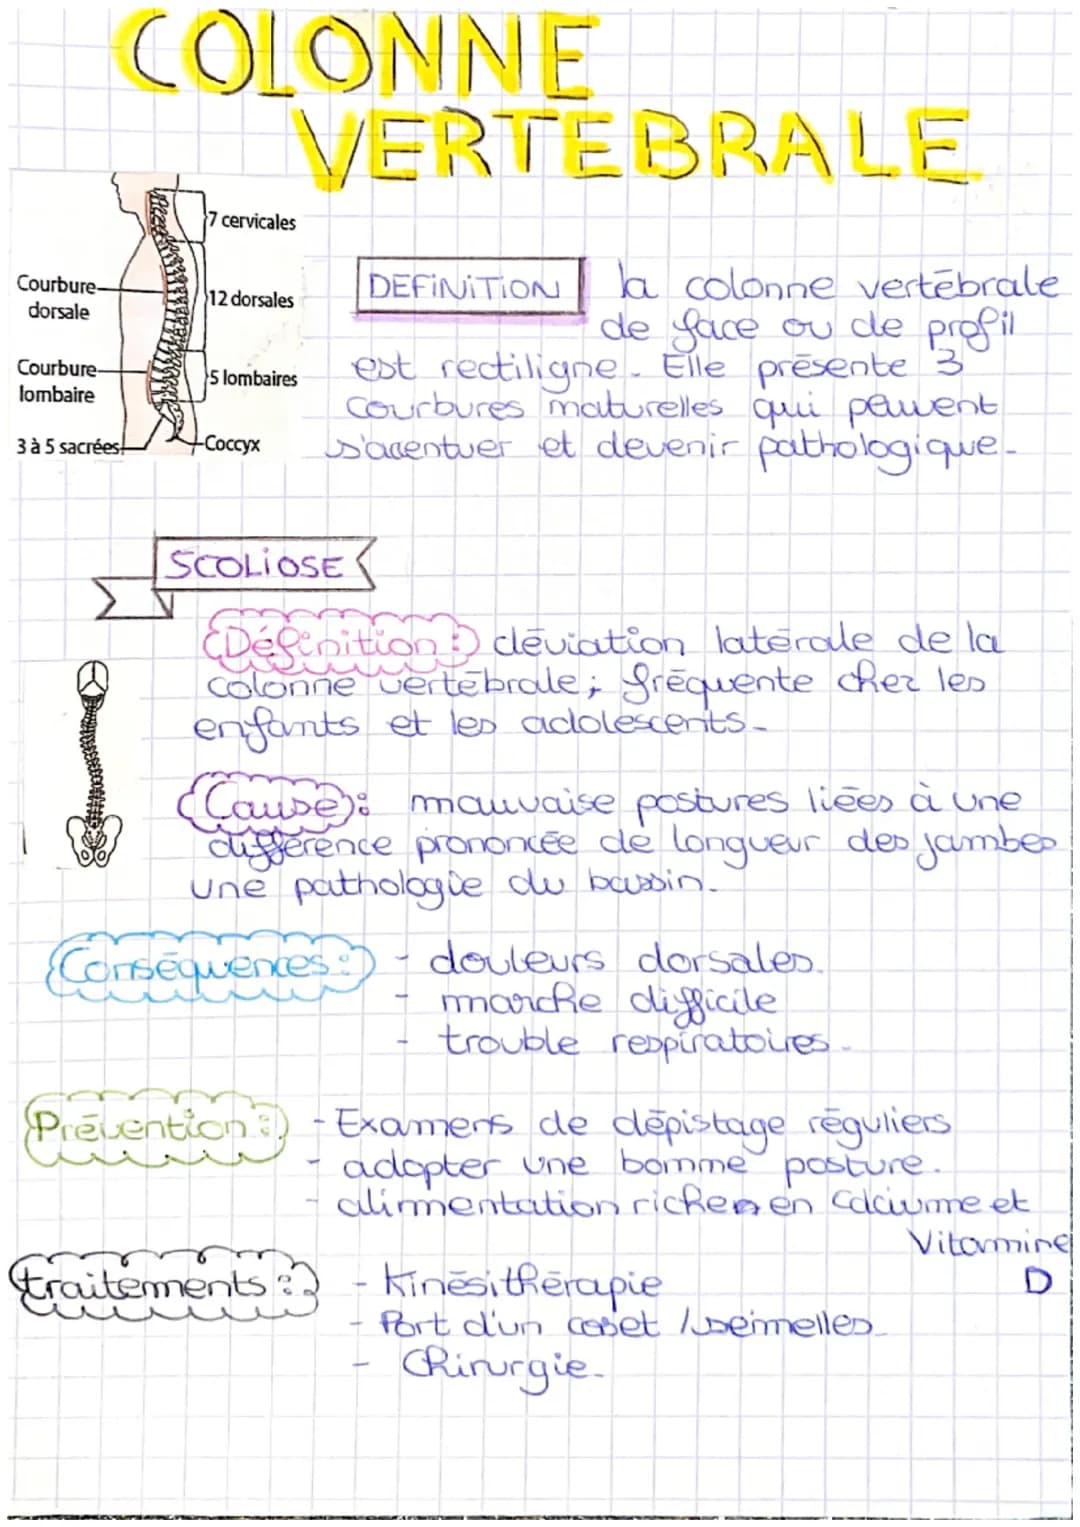 COLONNE
VERTEBRALE
7 cervicales
Courbure
dorsale
12 dorsales
Courbure
lombaire
5 lombaires
3 à 5 sacrées
Coccyx
DEFINITION la colonne vertébrale
de face ou de profil
est rectiligne. Elle présente 3
courbures naturelles qui peuvent
s'accentuer et devenir pathologique.
SCOLIOSE
Définition : déviation latérale de la
colonne vertébrale ; fréquente chez les
enfants et les adolescents.
Cause : mauvaise postures liées à une
différence prononcée de longueur des jambes
une pathologie du bassin.
Conséquences : - douleurs dorsales.
- marche difficile
- trouble respiratoires.
Prévention : - Examens de dépistage réguliers
- adopter une bonne posture.
- alimentation riche en calciume et
Vitamine
D
traitements : - Kinésithérapie
- Port d'un corset / semelles.
- Chirurgie.